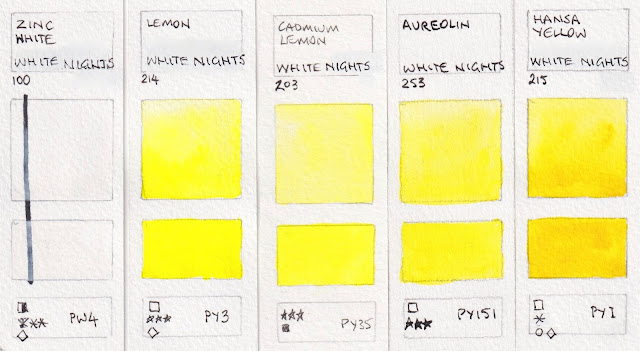 ZINC
WHITE
WHITE NIGHTS
100
PW4
LEMON
WHITE NIGHTS
214
PY3
CADMIUM
LEMON
WHITE NIGHTS
203
PY35
AUREOLIN
WHITE NIGHTS
253
PY151
HANSA
YELLOW
WHITE NIGHTS
215
PY1